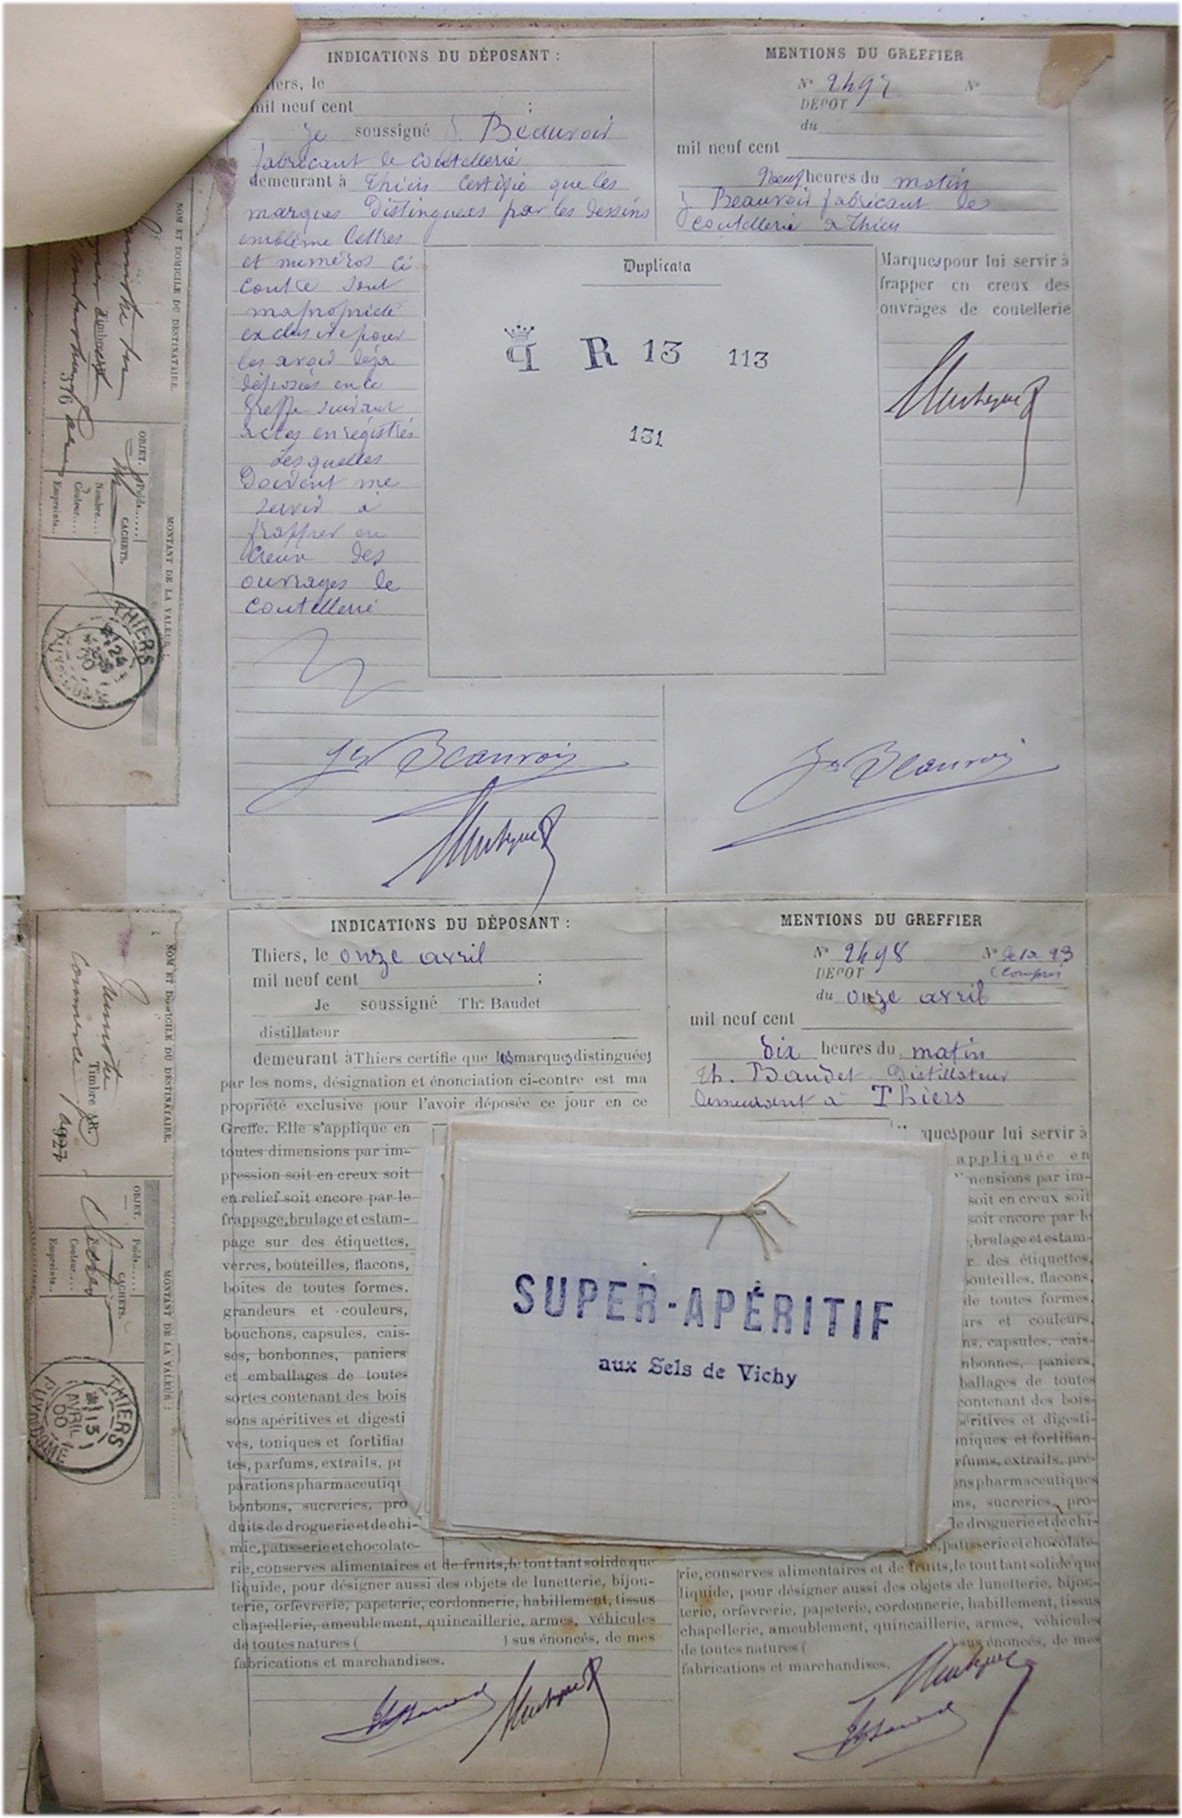 INDICATIONS DU DÉPOSANT :
iers, le
mil neuf cent ;
Je soussigné J. Beauvoir
fabricant de coutellerie
demeurant à Thiers certifie que les
marques Distinguees par les dessins
emblème lettres
et numéros ci
contre sont
ma propriété
exclusive pour
les avoir déja
déposées en ce
Greffe suivant
actes enregistrés
Lesquelles
Doivent me
servir à
frapper en
creux des
ouvrages de
coutellerie
Jh Beauvoir
MENTIONS DU GREFFIER
N° 2497 N°
DEPOT
du
mil neuf cent
Neuf heures du matin
J Beauvoir fabricant de
coutellerie à Thiers
Marques pour lui servir à
frapper en creux des
ouvrages de coutellerie
Duplicata
P R 13 113
131
Jh Beauvoir
NOM ET DOMICILE DU DESTINATAIRE.
Timbres
OBJET.
Poids.....
CACHETS.
Nombre....
Couleur....
Empreinte..
MONTANT DE LA VALEUR :
THIERS
24
00
PUY-DE-DOME
INDICATIONS DU DÉPOSANT :
Thiers, le onze avril
mil neuf cent ;
Je soussigné Th. Baudet
distillateur
demeurant à Thiers certifie que les marques distinguées
par les noms, désignation et énonciation ci-contre est ma
propriété exclusive pour l'avoir déposée ce jour en ce
Greffe. Elle s'applique en
toutes dimensions par im-
pression soit en creux soit
en relief soit encore par le
frappage, brulage et estam-
page sur des étiquettes,
verres, bouteilles, flacons,
boites de toutes formes,
grandeurs et couleurs,
bouchons, capsules, cais-
ses, bonbonnes, paniers
et emballages de toutes
sortes contenant des bois
sons apéritives et digesti
ves, toniques et fortifian
tes, parfums, extraits, pr
parations pharmaceutiq
bonbons, sucreries, pro
duits de droguerie et de chi-
mie, patisserie et chocolate-
rie, conserves alimentaires et de fruits, le tout tant solide que
liquide, pour désigner aussi des objets de lunetterie, bijou-
terie, orfèvrerie, papeterie, cordonnerie, habillement, tissus
chapellerie, ameublement, quincaillerie, armes, véhicules
de toutes natures ( ) sus énoncés, de mes
fabrications et marchandises.
MENTIONS DU GREFFIER
N° 2498 N°
DEPOT compris
du onze avril
mil neuf cent
dix heures du matin
Th. Baudet Distillateur
demeurant à Thiers
ques pour lui servir à
appliquée en
mensions par im-
soit en creux soit
soit encore par le
, brulage et estam-
r des étiquettes,
outeilles, flacons,
de toutes formes,
urs et couleurs,
ns, capsules, cais-
nbonnes, paniers,
ballages de toutes
contenant des bois-
éritives et digesti-
niques et fortifian-
rfums, extraits, pré-
ons pharmaceutiques
ns, sucreries, pro-
de droguerie et de chi-
e, patisserie et chocolate-
rie, conserves alimentaires et de fruits, le tout tant solide que
liquide, pour désigner aussi des objets de lunetterie, bijou-
terie, orfèvrerie, papeterie, cordonnerie, habillement, tissus
chapellerie, ameublement, quincaillerie, armes, véhicules
de toutes natures ( ) sus énoncés, de mes
fabrications et marchandises.
SUPER-APÉRITIF
aux Sels de Vichy
NOM ET DOMICILE DU DESTINATAIRE.
Commerce
Timbre
OBJET.
Poids.....
CACHETS.
Couleur....
Empreinte..
MONTANT DE LA VALEUR :
THIERS
13
AVRIL
00
PUY-DE-DOME